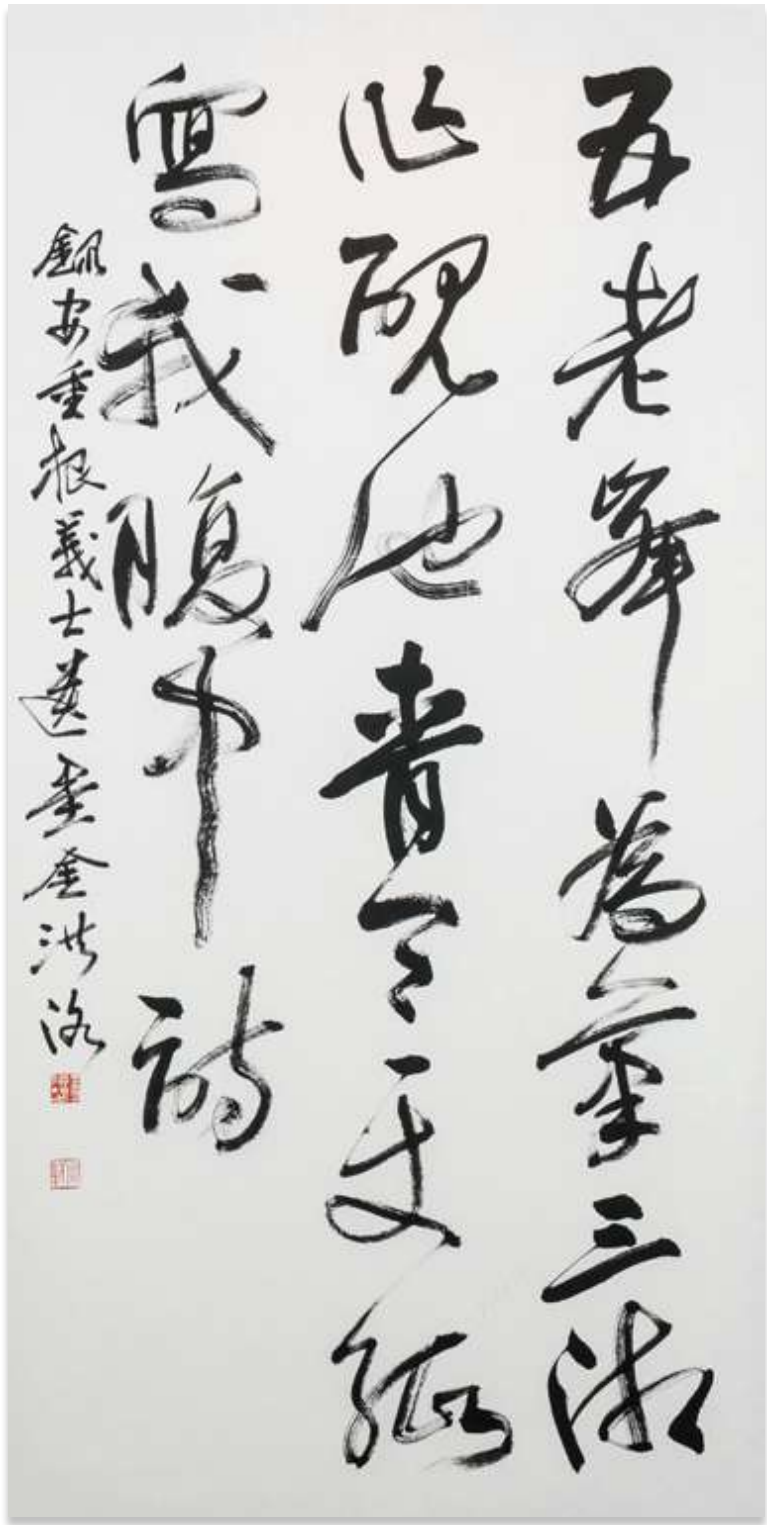 五老峯為筆三湘
作硯池青天一丈紙
寫我腹中詩
錄安重根義士遺墨金洪洛